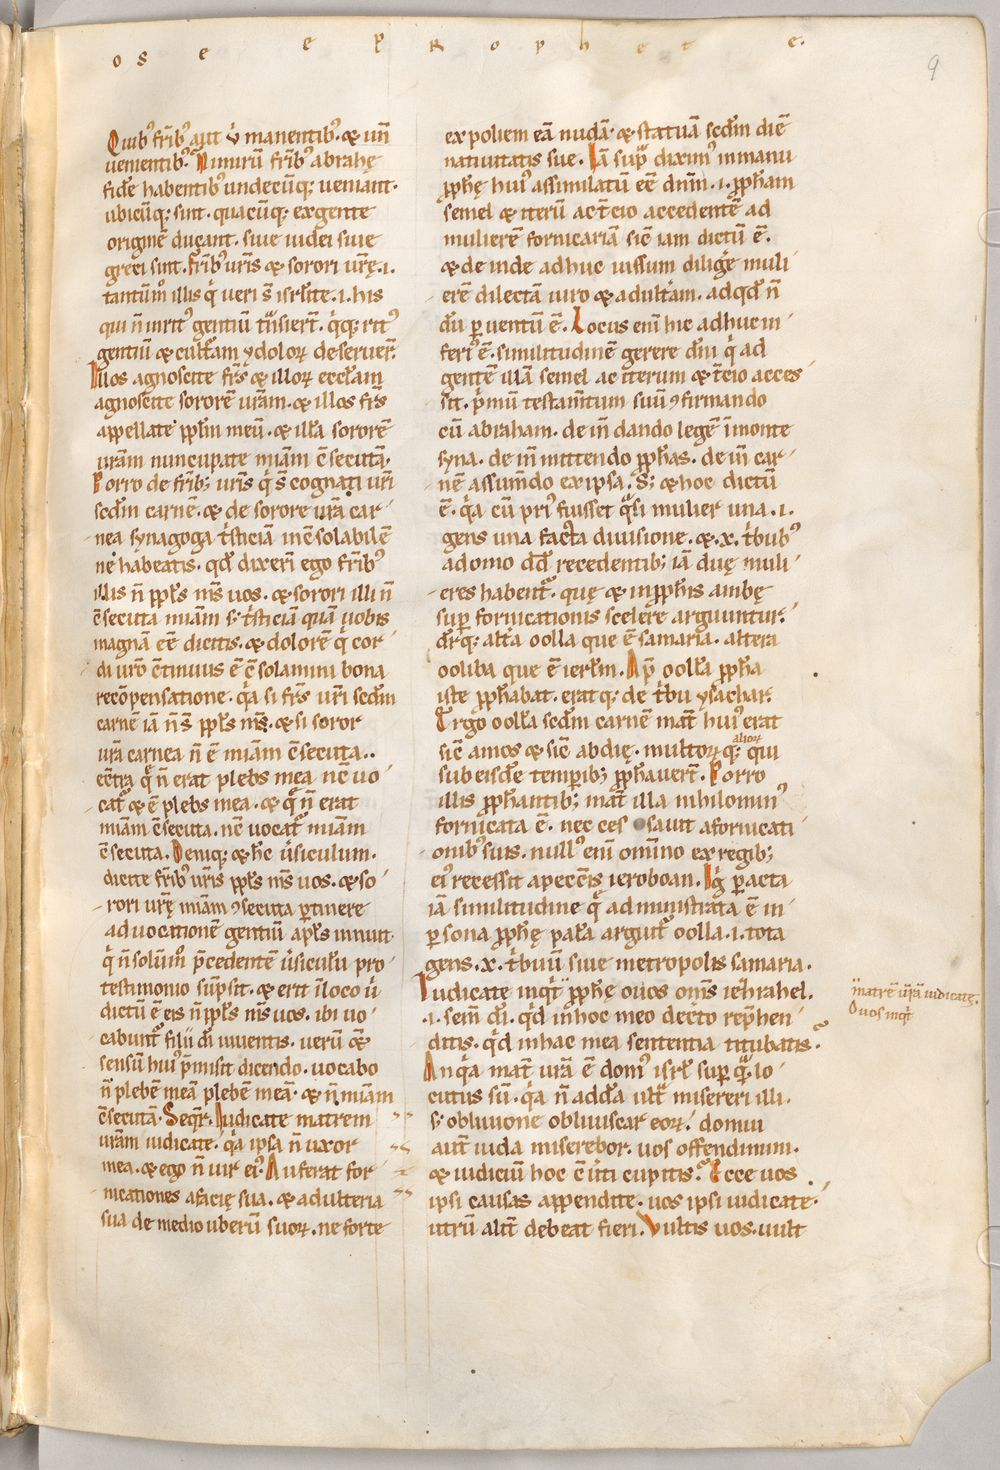 OSEE PROPHETE.
9
Quib' fr̄ib' aut ů manentib' & un̄
uenientib'. Nimirū fr̄ib' abrahę
fidē habentib' undecūq; ueniant.
ubicūq; sint. quacūq; ex gente
originē ducant. siue iudei siue
greci sint. fr̄ib' ur̄is & sorori ur̄ę .i.
tantūm̊ illis q̇ ueri s̄ isrl̄ite .i. his
qui n̄ in rit' gentiū tn̄sier̄t. q̇q; rit'
gentiū & cultʳam ydoloꝝ deseruer̄.
Illos agnoscite fr̄s & illoꝝ eccl̄am
agnoscite sororē ur̄am. & illos fr̄s
appellate ppl̄m meū. & illā sororē
ur̄am nuncupate mīam c̄secutā.
Porro de fr̄ib; ur̄is q̇ s̄ cognati ur̄i
scd̄m carnē. & de sorore ur̄a car
nea synagoga t̓sticiā in c̄solabilē
ne habeatis. qd̄ dixerī ego fr̄ib'
illis n̄ ppl̄s m̄s uos. & sorori illi n̄
c̄secuta mīam s; t̓sticiā quā uobis
magnā eē dicitis. & dolorē q̇ cor
di ur̄o c̄tinuus ē c̄solamini bona
recōpensatione. q̇a si fr̄s ur̄i scd̄m
carnē iā n̄ s̄ ppl̄s m̄s. & si soror
ur̄a carnea n̄ ē mīam c̄secuta..
ec̄tra q̄ n̄ erat plebs mea nc̄ uo
catʳ & ē plebs mea. & q̄ n̄ erat
mīam c̄secuta. nc̄ uocatʳ mīam
c̄secuta. Deniq; & hc̄ ůsiculum.
dicite fr̄ib' ur̄is ppl̄s m̄s uos. & so
rori ur̄ę mīam ꝯsecuta ꝑtinere
ad uocationē gentiū apl̄s innuit.
q̇ n̄ solūm̊ p̄cedentē ůsicul̄u pro
testimonio sūpsit. & erit ī loco ů
dictū ē eis n̄ ppl̄s m̄s uos. ibi uo
cabuntʳ filii dī uiuentis. uerū &
sensū hui' p̄misit dicendo. uocabo
n̄ plebē meā plebē meā. & n̄ mīam
c̄secutā. Seqʳ. Iudicate matrem
ur̄am iudicate. q̇a ipsa n̄ uxor
mea. & ego n̄ uir ei'. Auferat for
nicationes a facię sua. & adulteria
sua de medio uberū suoꝝ. ne forte
expoliem eā nudā. & statuā scd̄m diē
natiuitatis sue. Iā supᵃ diximꝰ in manu
ꝓph̄ę hui' assimilatū eē dn̄m .i. ꝓph̄am
semel & iterū ac t̄cio accedentē ad
mulierē fornicariā sic̄ iam dictū ē.
& de inde adhuc uissum diligē muli
erē dilectam uiro & adult̄am. ad qd̄ n̄
dū ꝑuentū ē. Locus enī hic adhuc in
feri' ē. similitudinē gerere dn̄i q̇ ad
gentē illā semel ac iterum & t̄cio acces
sit. p̓mū testam̄tum suū ꝯfirmando
cū abraham. dein̄ dando legē ī monte
syna. dein̄ mittendo ꝓph̄as. dein̄ car
nē assum̄do ex ipsa. S; & hoc dictū
ē. q̇a cū pri' fuisset qᵃsi mulier una .i.
gens una facta diuisione. & .x. t̓bub'
a domo dd̄ recedentib; iā duę muli
eres habentʳ. quę & in ꝓph̄is ambę
suꝑ fornicationis scelere arguuntur.
dr̄q; alt̄a oolla que ē samaria. altera
ooliba que ē ierl̄m. Ap̄ oollā ꝓph̄a
iste ꝓph̄abat. eratq; de t̓bu ysachar.
Ergo oolla scd̄m carnē mat̄ hui' erat
sic̄ amos & sic̄ abdię. multoꝝq; qui
alioꝝ
sub eisdē temꝑib; ꝓph̄auer̄t. Porro
illis ꝓph̄antib; mat̄ illa nihilomin'
fornicata ē. nec ces sauit a fornicati
onib' suis. null' enī omīno ex regib;
ei' recessit a pecc̄is ieroboan. Igʳ ꝑacta
iā similitudine q̄ administrata ē in
ꝑsona ꝓph̄ę palā arguitʳ oolla .i. tota
gens .x. t̓buū siue metropolis samaria.
Iudicate inqʳt ꝓph̄ę o uos om̄s ieh̄rahel.
.i. sem̄ dī. q̇d in hoc meo dc̄cto rep̄hen
ditis. q̇d in hac mea sententia titubatis.
An q̇a mat̄ ur̄a ē dom' isrl̄ suꝑ qᵃ lo
cutus sū. q̇a n̄ addā ultᵃ misereri illi.
s; obliuione obliuiscar eoꝝ. domui
aut̄ iuda miserebor. uos offendimini.
& iudiciū hoc ē īiti cupitis. Ecce uos
ipsi causas appendite. uos ipsi iudicate.
utrū alit̄ debeat fieri. Vultis uos. uult
matrē ur̄ā iudicatę.
O uos inqʳt